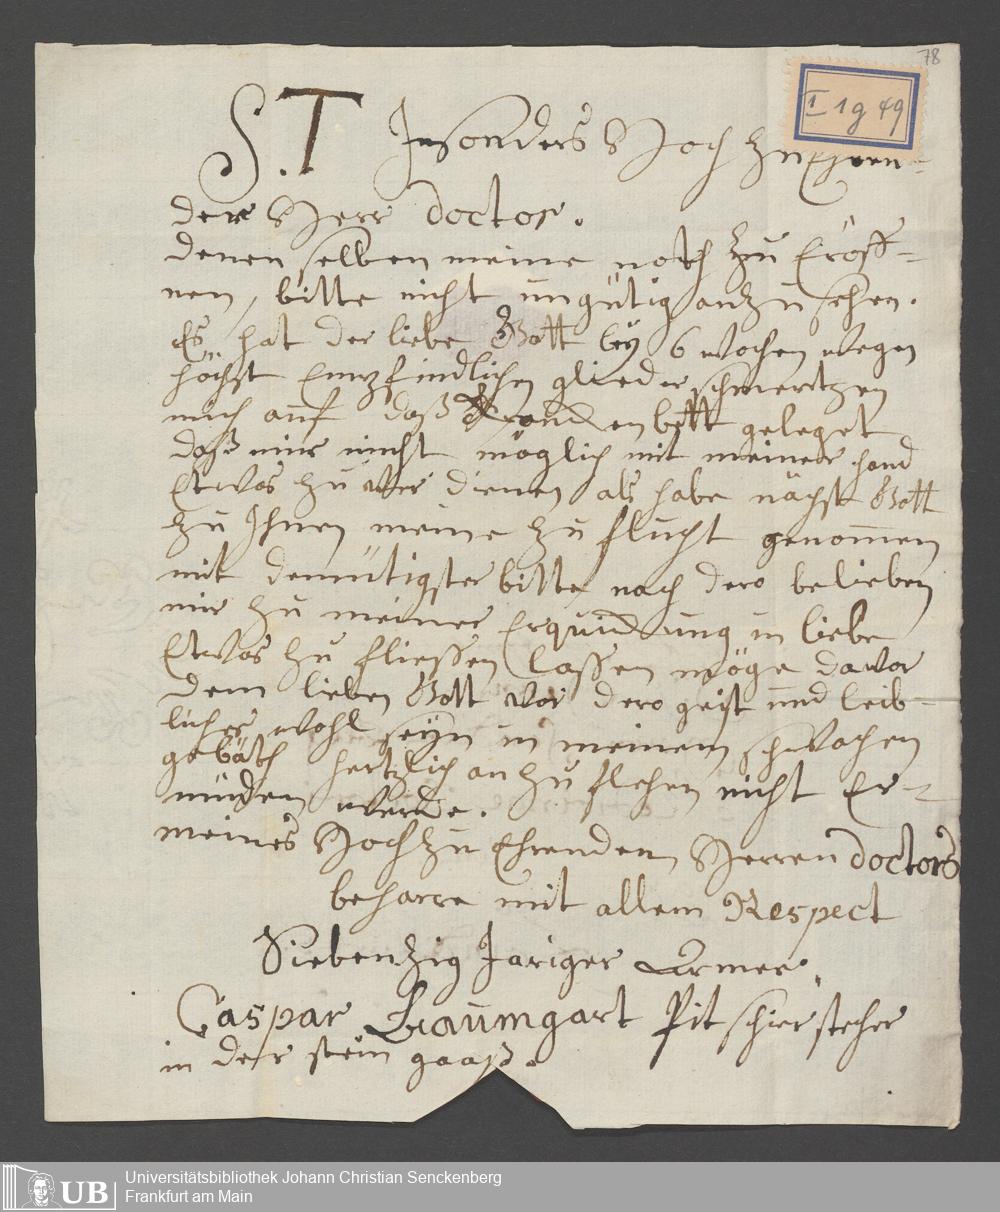 78
I 1g 49
S.T Insonders Hoch zu Ehren-
der Herr Doctor.
denen selben meine noth zu Eröff-
nen, bitte nicht ungütig anzusehen.
Es hat der liebe Gott bey 6 wochen wegen
höchst Empfindlichen glieder schmertzen
mich auf daß Krancken bett geleget
daß mir nicht möglich mit meiner hand
Etwas zu ver dienen als habe nächst Gott
zu Ihnen meine zu flucht genom̄en
mit demütigster bitte nach dero belieben
mir zu meiner Erquickung in liebe
Etwas zu fliessen lassen möge davor
dem lieben Gott vor dero geist und leib-
liches wohl seyn in meinem schwachen
gebäth hertzlich an zu flehen nicht Er-
müden werde.
meines Hoch zu Ehrenden Herren Doctors
beharre mit allem Respect
Siebenzig Jariger Armer
Caspar Baumgart Pit schier stecher
in der stein gaaß.
UB Universitätsbibliothek Johann Christian Senckenberg
Frankfurt am Main